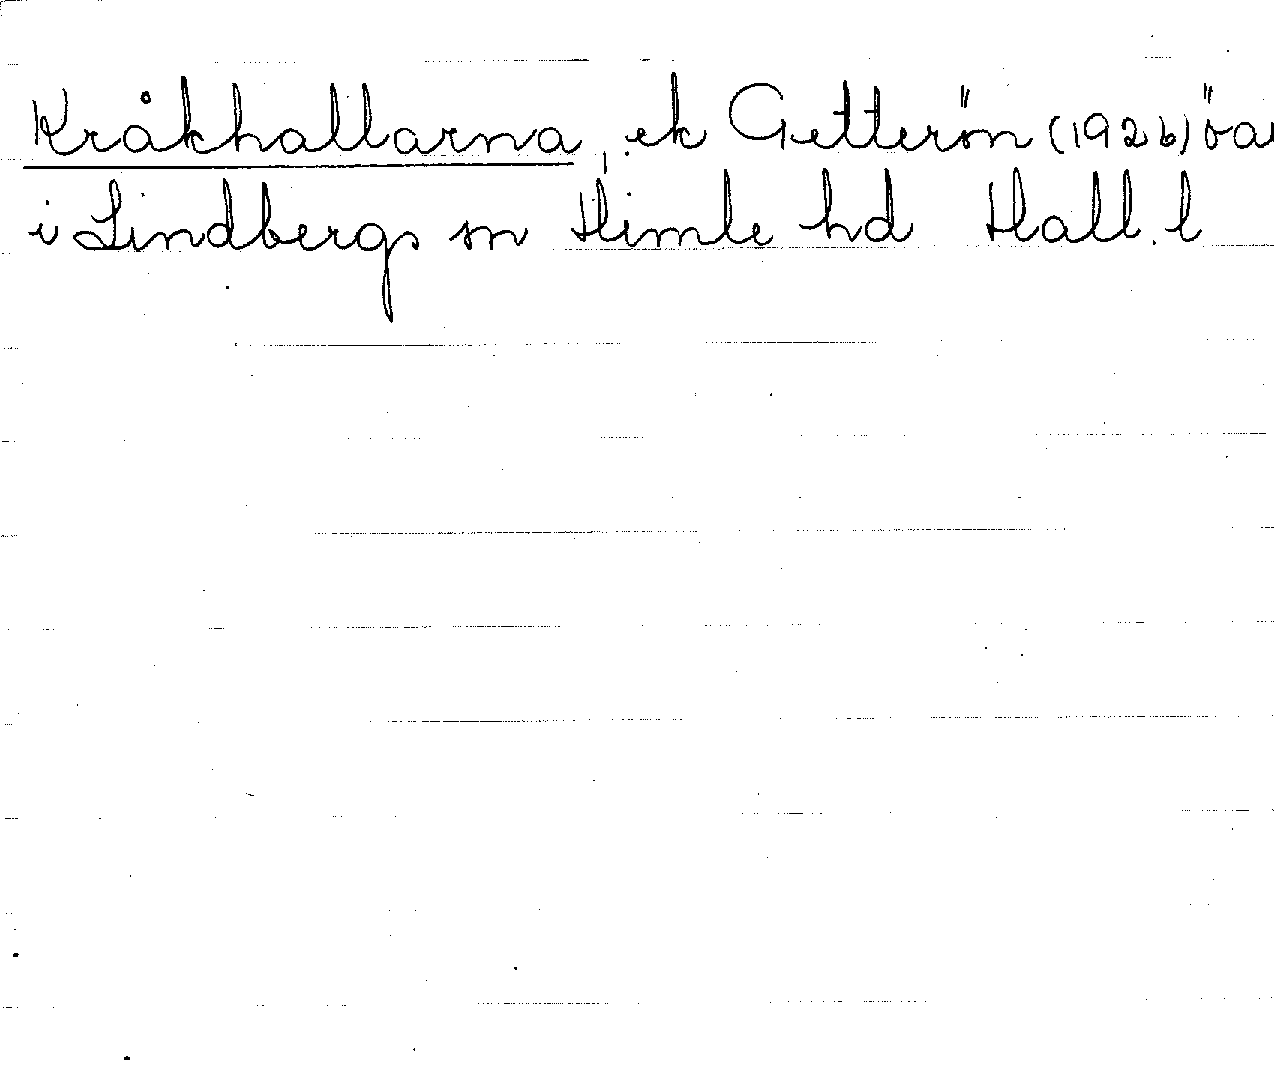 Kråkhallarna, ek Getterön (1926) öa
i Lindbergs sn Himle hd Hall. l